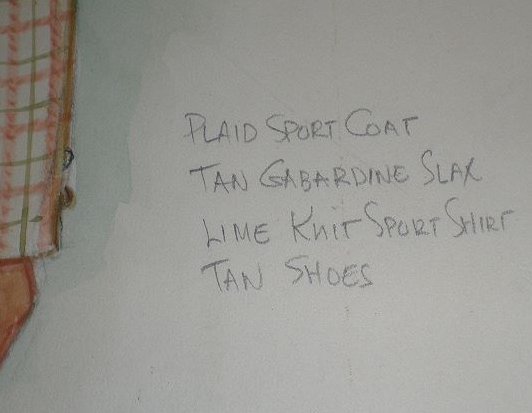 PLAID SPORT COAT
TAN GABARDINE SLAX
LIME KNIT SPORT SHIRT
TAN SHOES